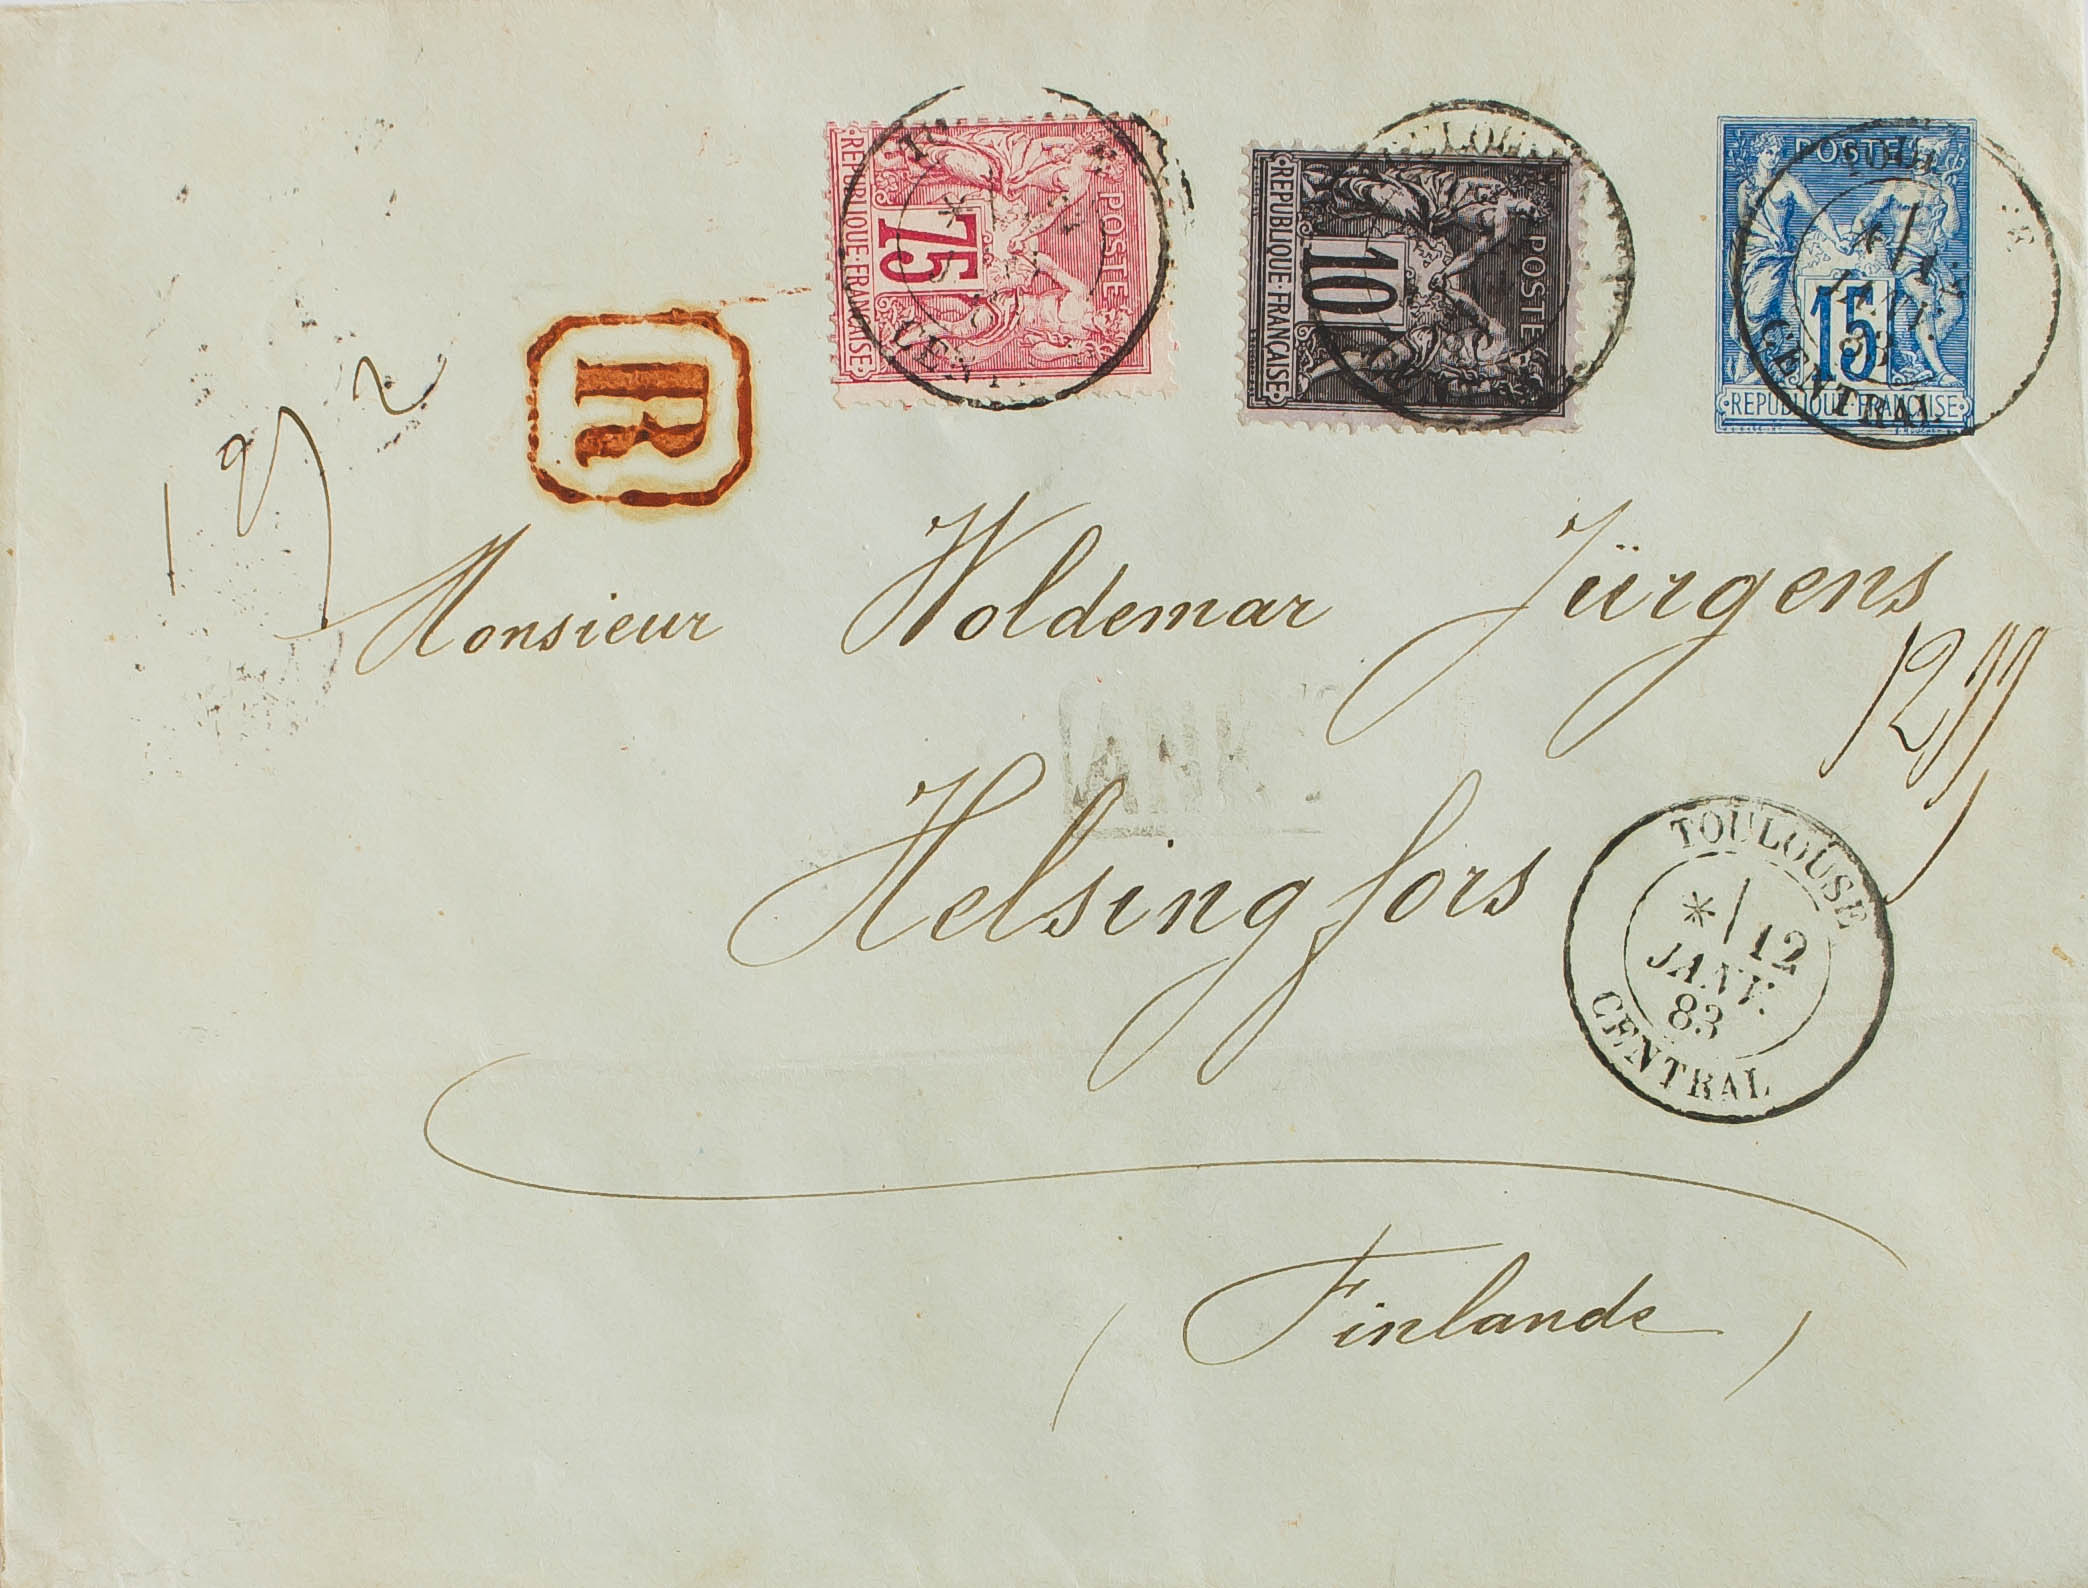 POSTES
75
REPUBLIQUE·FRANÇAISE
CENT
POSTE
10
REPUBLIQUE·FRANÇAISE
POSTE
15
REPUBLIQUE·FRANÇAISE
JANV.
83
CENTRAL
R
Monsieur Woldemar Jürgens
Helsingfors
TOULOUSE
* 12
JANV.
83
CENTRAL
(Finlande)